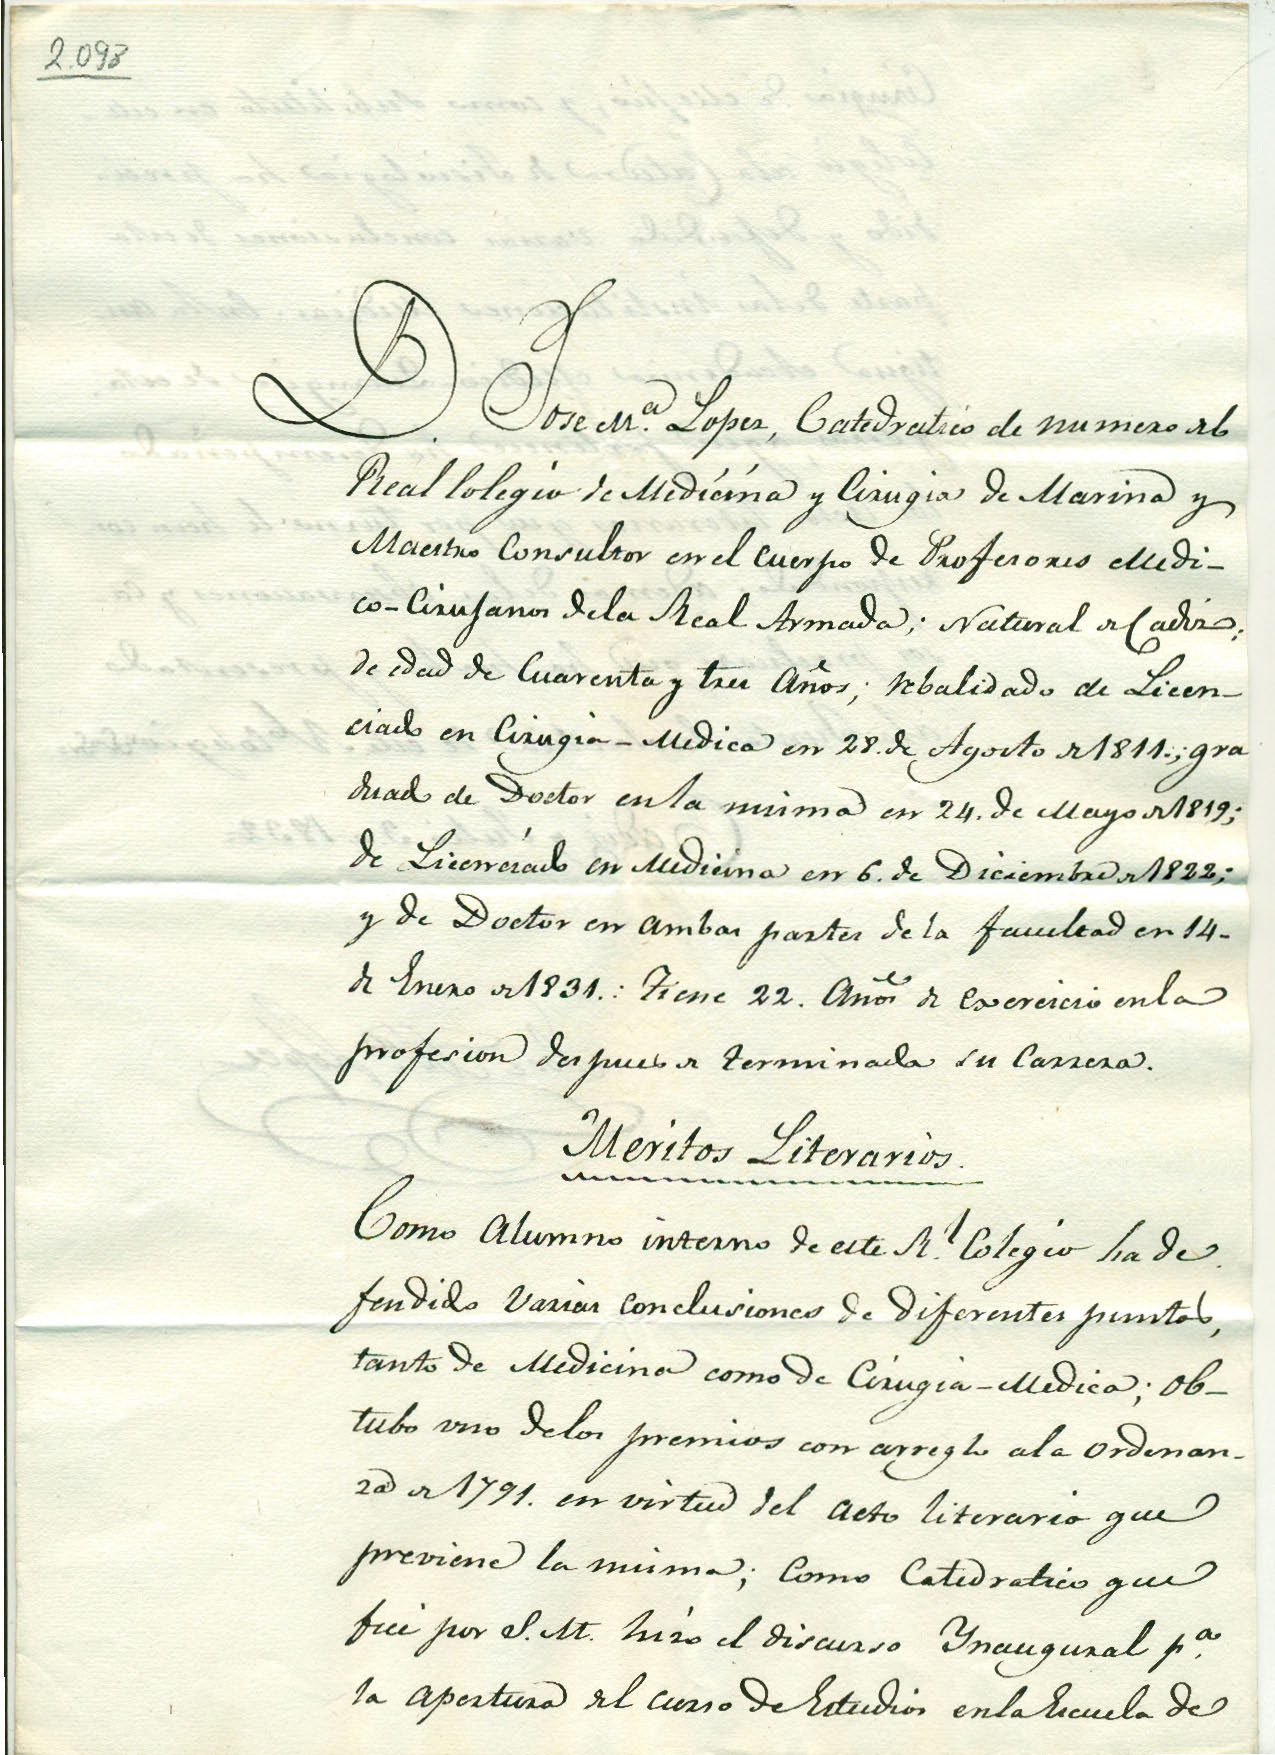 2.098
D. Jose Mª. Lopez, Catedratico de numero del
Real Colegio de Medicina y Cirugia de Marina y
Maestro Consultor en el Cuerpo de Profesores Medi-
co-Cirujanos de la Real Armada; Natural de Cadiz;
de edad de Cuarenta y tres Años; rebalidado de Licen-
ciado en Cirugia-Medica en 28. de Agosto de 1811.; gra
duado de Doctor en la misma en 24. de Mayo de 1819;
de Licenciado en Medicina en 6. de Diciembre de 1822;
y de Doctor en ambas partes de la facultad en 14-
de Enero de 1831.: Tiene 22. Años de exercicio en la
profesion despues de terminada su Carrera.
Meritos Literarios.
Como Alumno interno de este Rl. Colegio ha de
fendido varias conclusiones de diferentes puntos,
tanto de Medicina como de Cirugia-Medica; Ob-
tubo uno de los premios con arreglo a la ordenan-
za de 1791. en virtud del acto literario que
previene la misma; Como Catedratico que
fue por S. M. hizo el discurso Ynaugural pª.
la apertura del curso de Estudios en la Escuela de